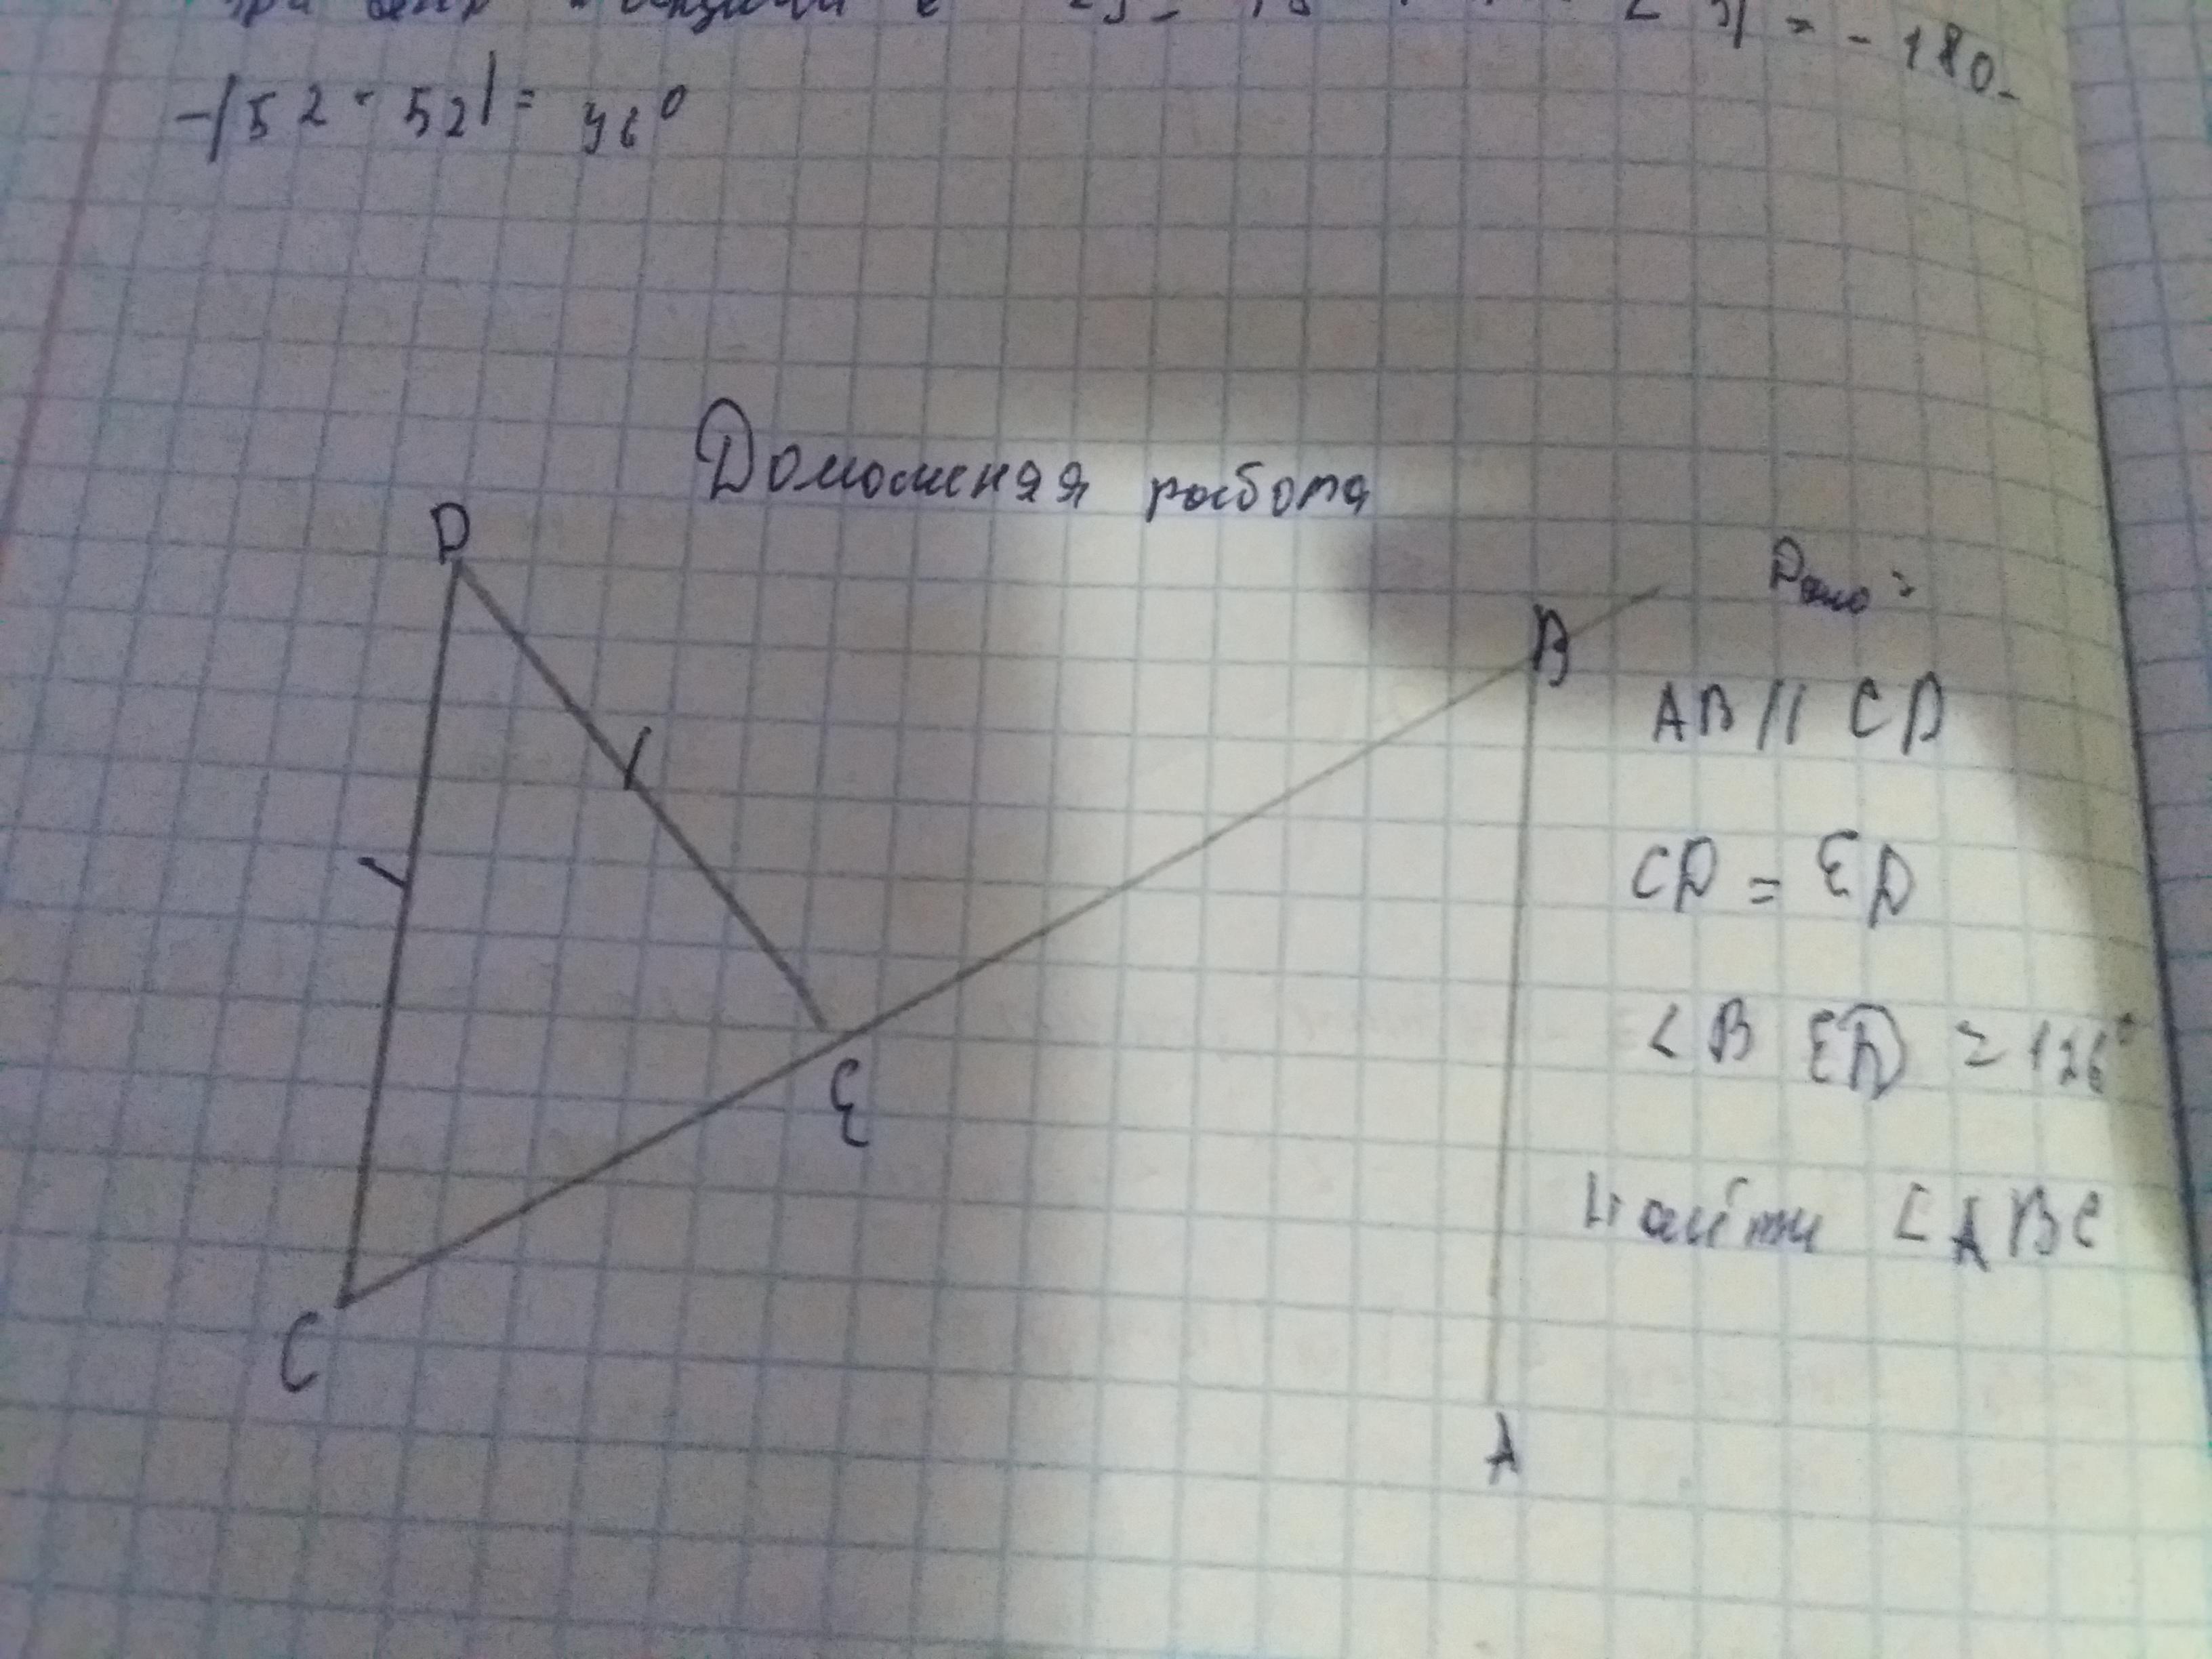 = - 180 -
- (52 + 52) = 76°
Домашняя работа
D
B
Дано:
AB || CD
CD = ED
<BED = 126°
E
Найти <ABC
C
A